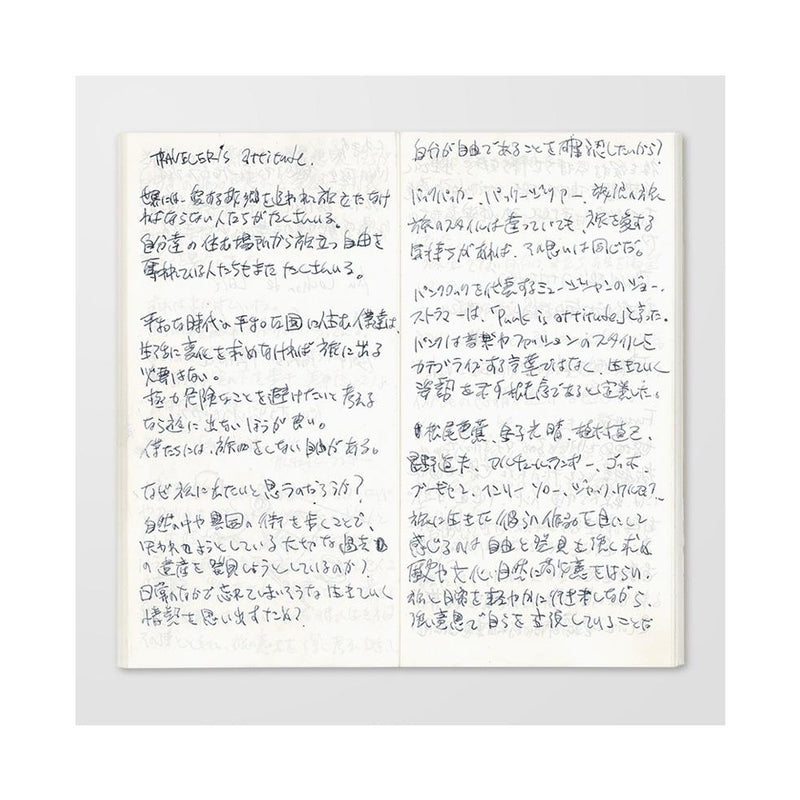 TRAVELER's attitude.
世界には、愛する故郷を追われて旅立たなけ
ればならない人たちがたくさんいる。
自分達の住む場所から旅立つ自由を
奪われている人たちもまたたくさんいる。
平和な時代の平和な国に住む僕達は、
生活に変化を求めなければ旅に出る
必要はない。
極力危険なことを避けたいと考える
なら旅に出ないほうが良い。
僕たちには、旅をしない自由がある。
なぜ旅に出たいと思うのだろうか？
自然の中や異国の街を歩くことで、
失われようとしている大切な過去
の遺産を発見しようとしているのか？
日常のなかで忘れてしまいそうな生きていく
情熱を思い出すためか？
自分が自由であることを確認したいから？
バックパッカー、パッケージツアー、
旅のスタイルは違っていても、旅を愛する
気持ちがあれば、その思いは同じだ。
パンクロックを代表するミュージシャンのジョー・
ストラマーは、「Punk is attitude」と言った。
パンクは音楽やファッションのスタイルを
カテゴライズする言葉ではなく、生きていく
姿勢を示す概念であると定義した。
松尾芭蕉、金子光晴、植村直己、
星野道夫、アルチュール・ランボー、ゴッホ、
ゴーギャン、ヘンリー・ソロー、ジャック・ケルアック…
旅に生きた彼らの作品を目にして
感じるのは自由と発見を強く求め
歴史や文化、自然に敬意をはらい、
旅と日常を軽やかに行き来しながら、
強い意思で自らを表現していることだ